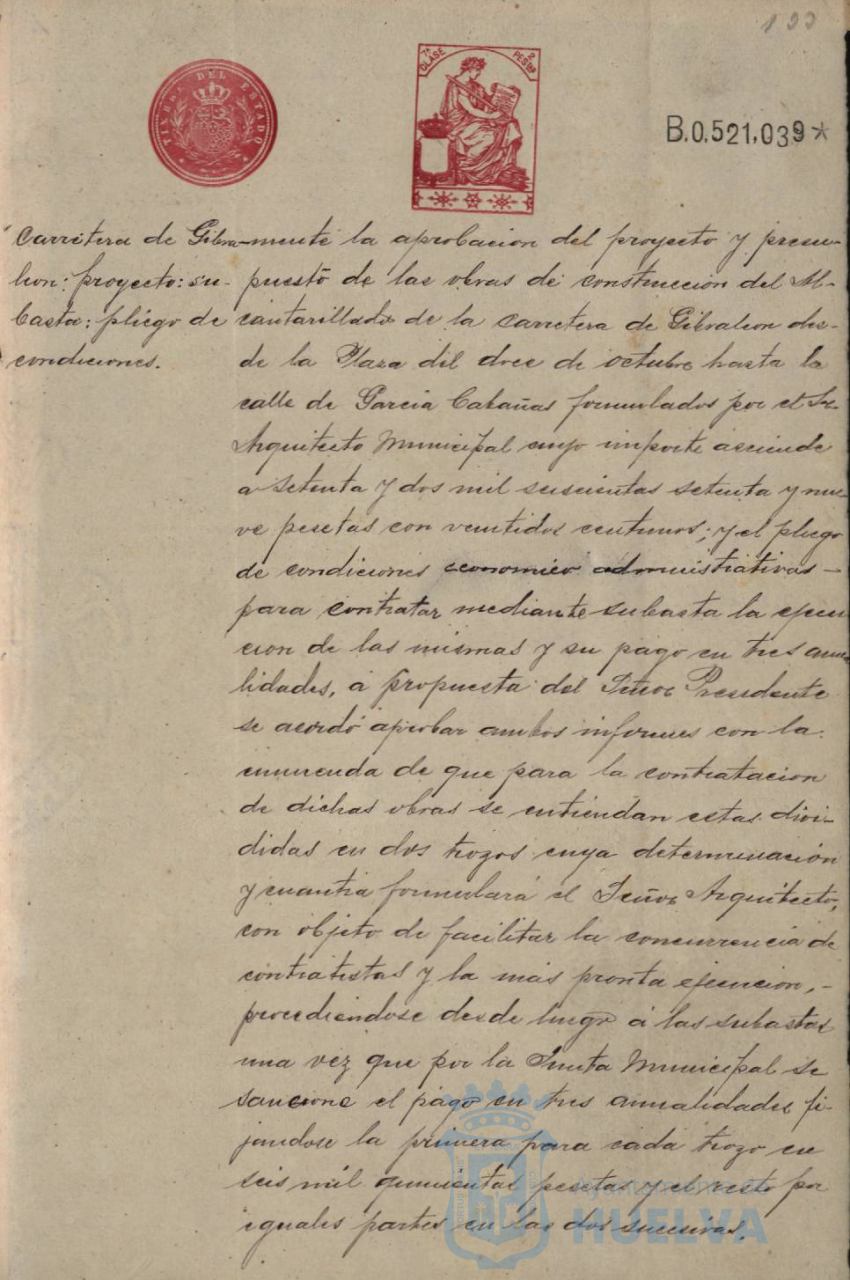 133
TIMBRE DEL ESTADO
7ª CLASE
2 PESETAS
B.0.521,039*
Carretera de Gibra-
leon: proyecto: su-
basta: pliego de
condiciones.
mente la aprobacion del proyecto y presu-
puesto de las obras de construccion del Al-
cantarillado de la carretera de Gibraleon des-
de la Plaza del doce de octubre hasta la
calle de Garcia Cabañas formulados por el Sr.
Arquitecto Municipal cuyo importe asciende
a setenta y dos mil seiscientas setenta y nue-
ve pesetas con veintidos centimos; y el pliego
de condiciones economico administrativas -
para contratar mediante subasta la ejecu
cion de las mismas y su pago en tres anua
lidades, á propuesta del Señor Presidente
se acordó aprobar ambos informes con la
enmienda de que para la contratacion
de dichas obras se entiendan estas divi-
didas en dos trozos cuya determinación
y cuantia formulará el Señor Arquitecto,
con objeto de facilitar la concurrencia de
contratistas y la más pronta ejecucion, -
procediendose desde luego á las subastas
una vez que por la Junta Municipal se
sancione el pago en tres anualidades fi-
jandose la primera para cada trozo en
seis mil quinientas pesetas y el resto por
iguales partes en las dos sucesivas.
Ayuntamiento de
HUELVA